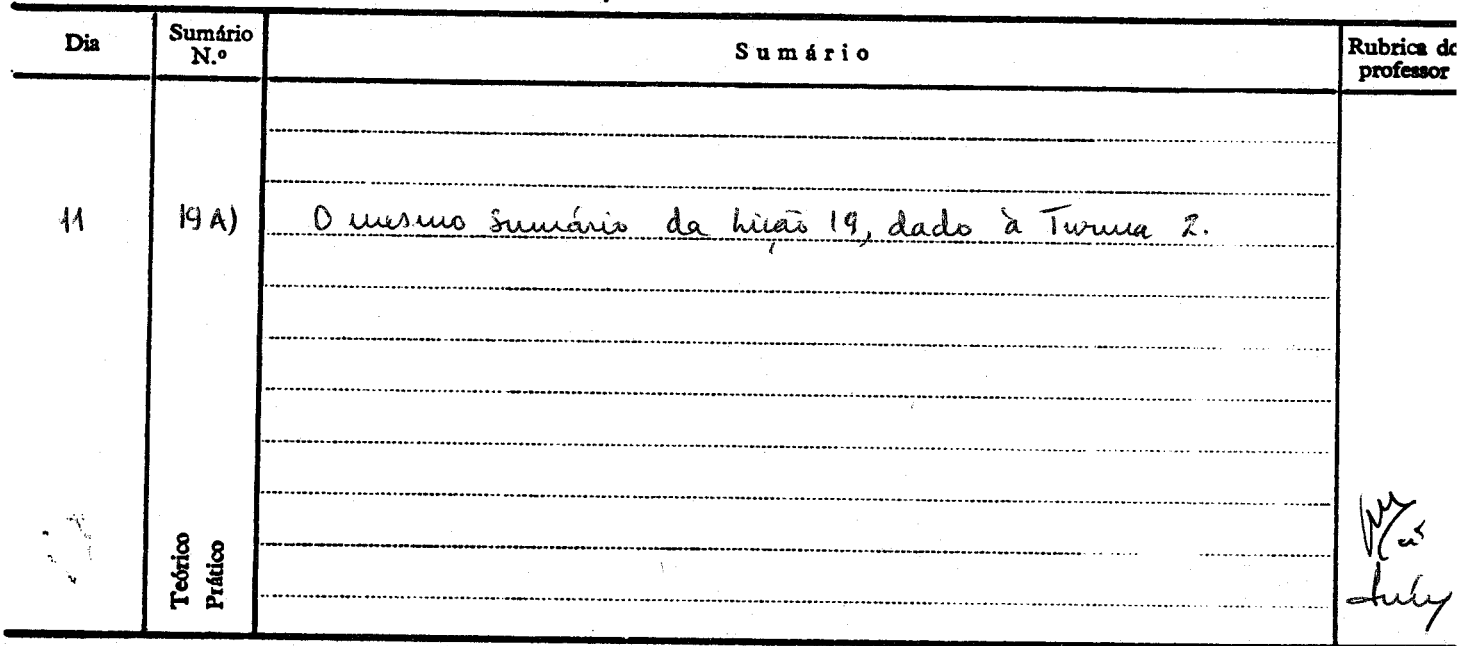 Dia
Sumário
N.º
Sumário
Rubrica do
professor
11
19 A)
O mesmo Sumário da Lição 19, dado à Turma 2.
Teórico
Prático